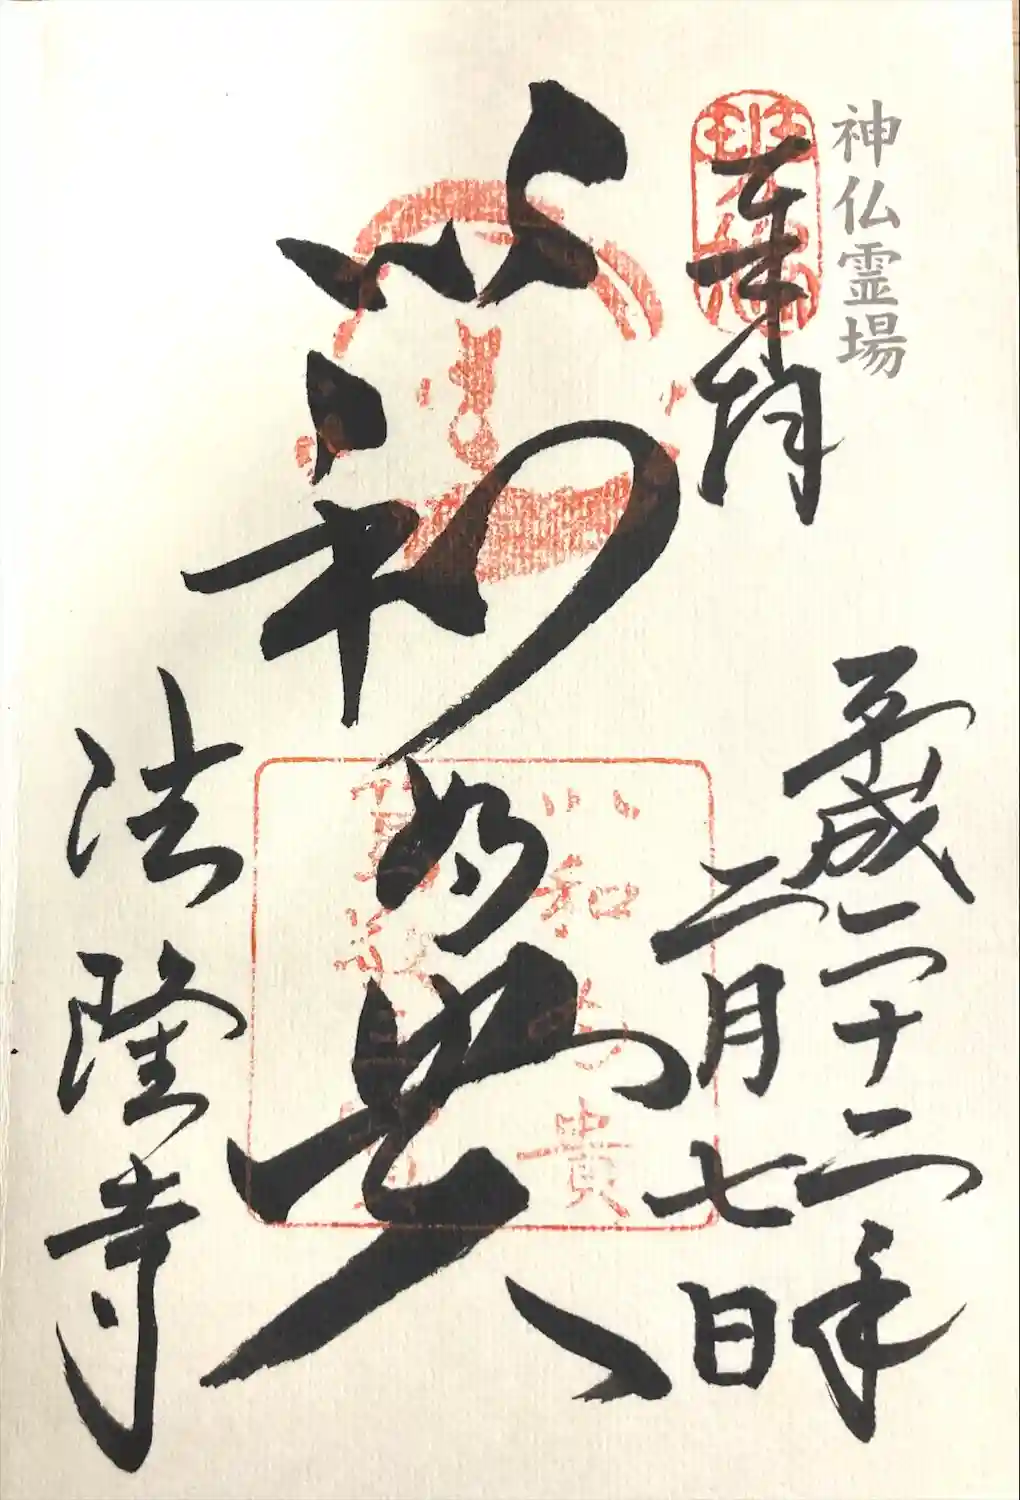 神仏霊場
奉拝
平成二十二年
二月七日
以和為貴
以和為貴
法隆寺